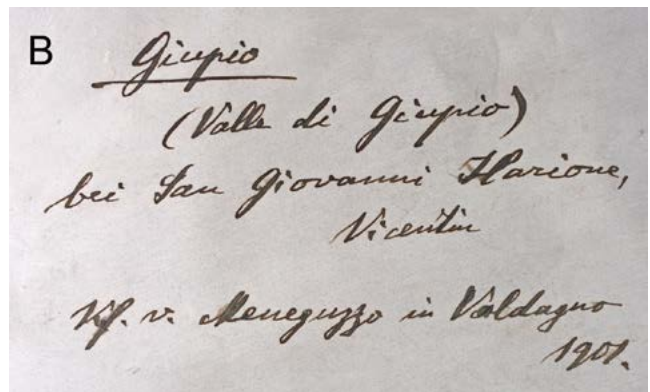 B
Giupio
(Valle di Giupio)
bei San Giovanni Ilarione,
Vicentin
Kf. v. Meneguzzo in Valdagno
1901.